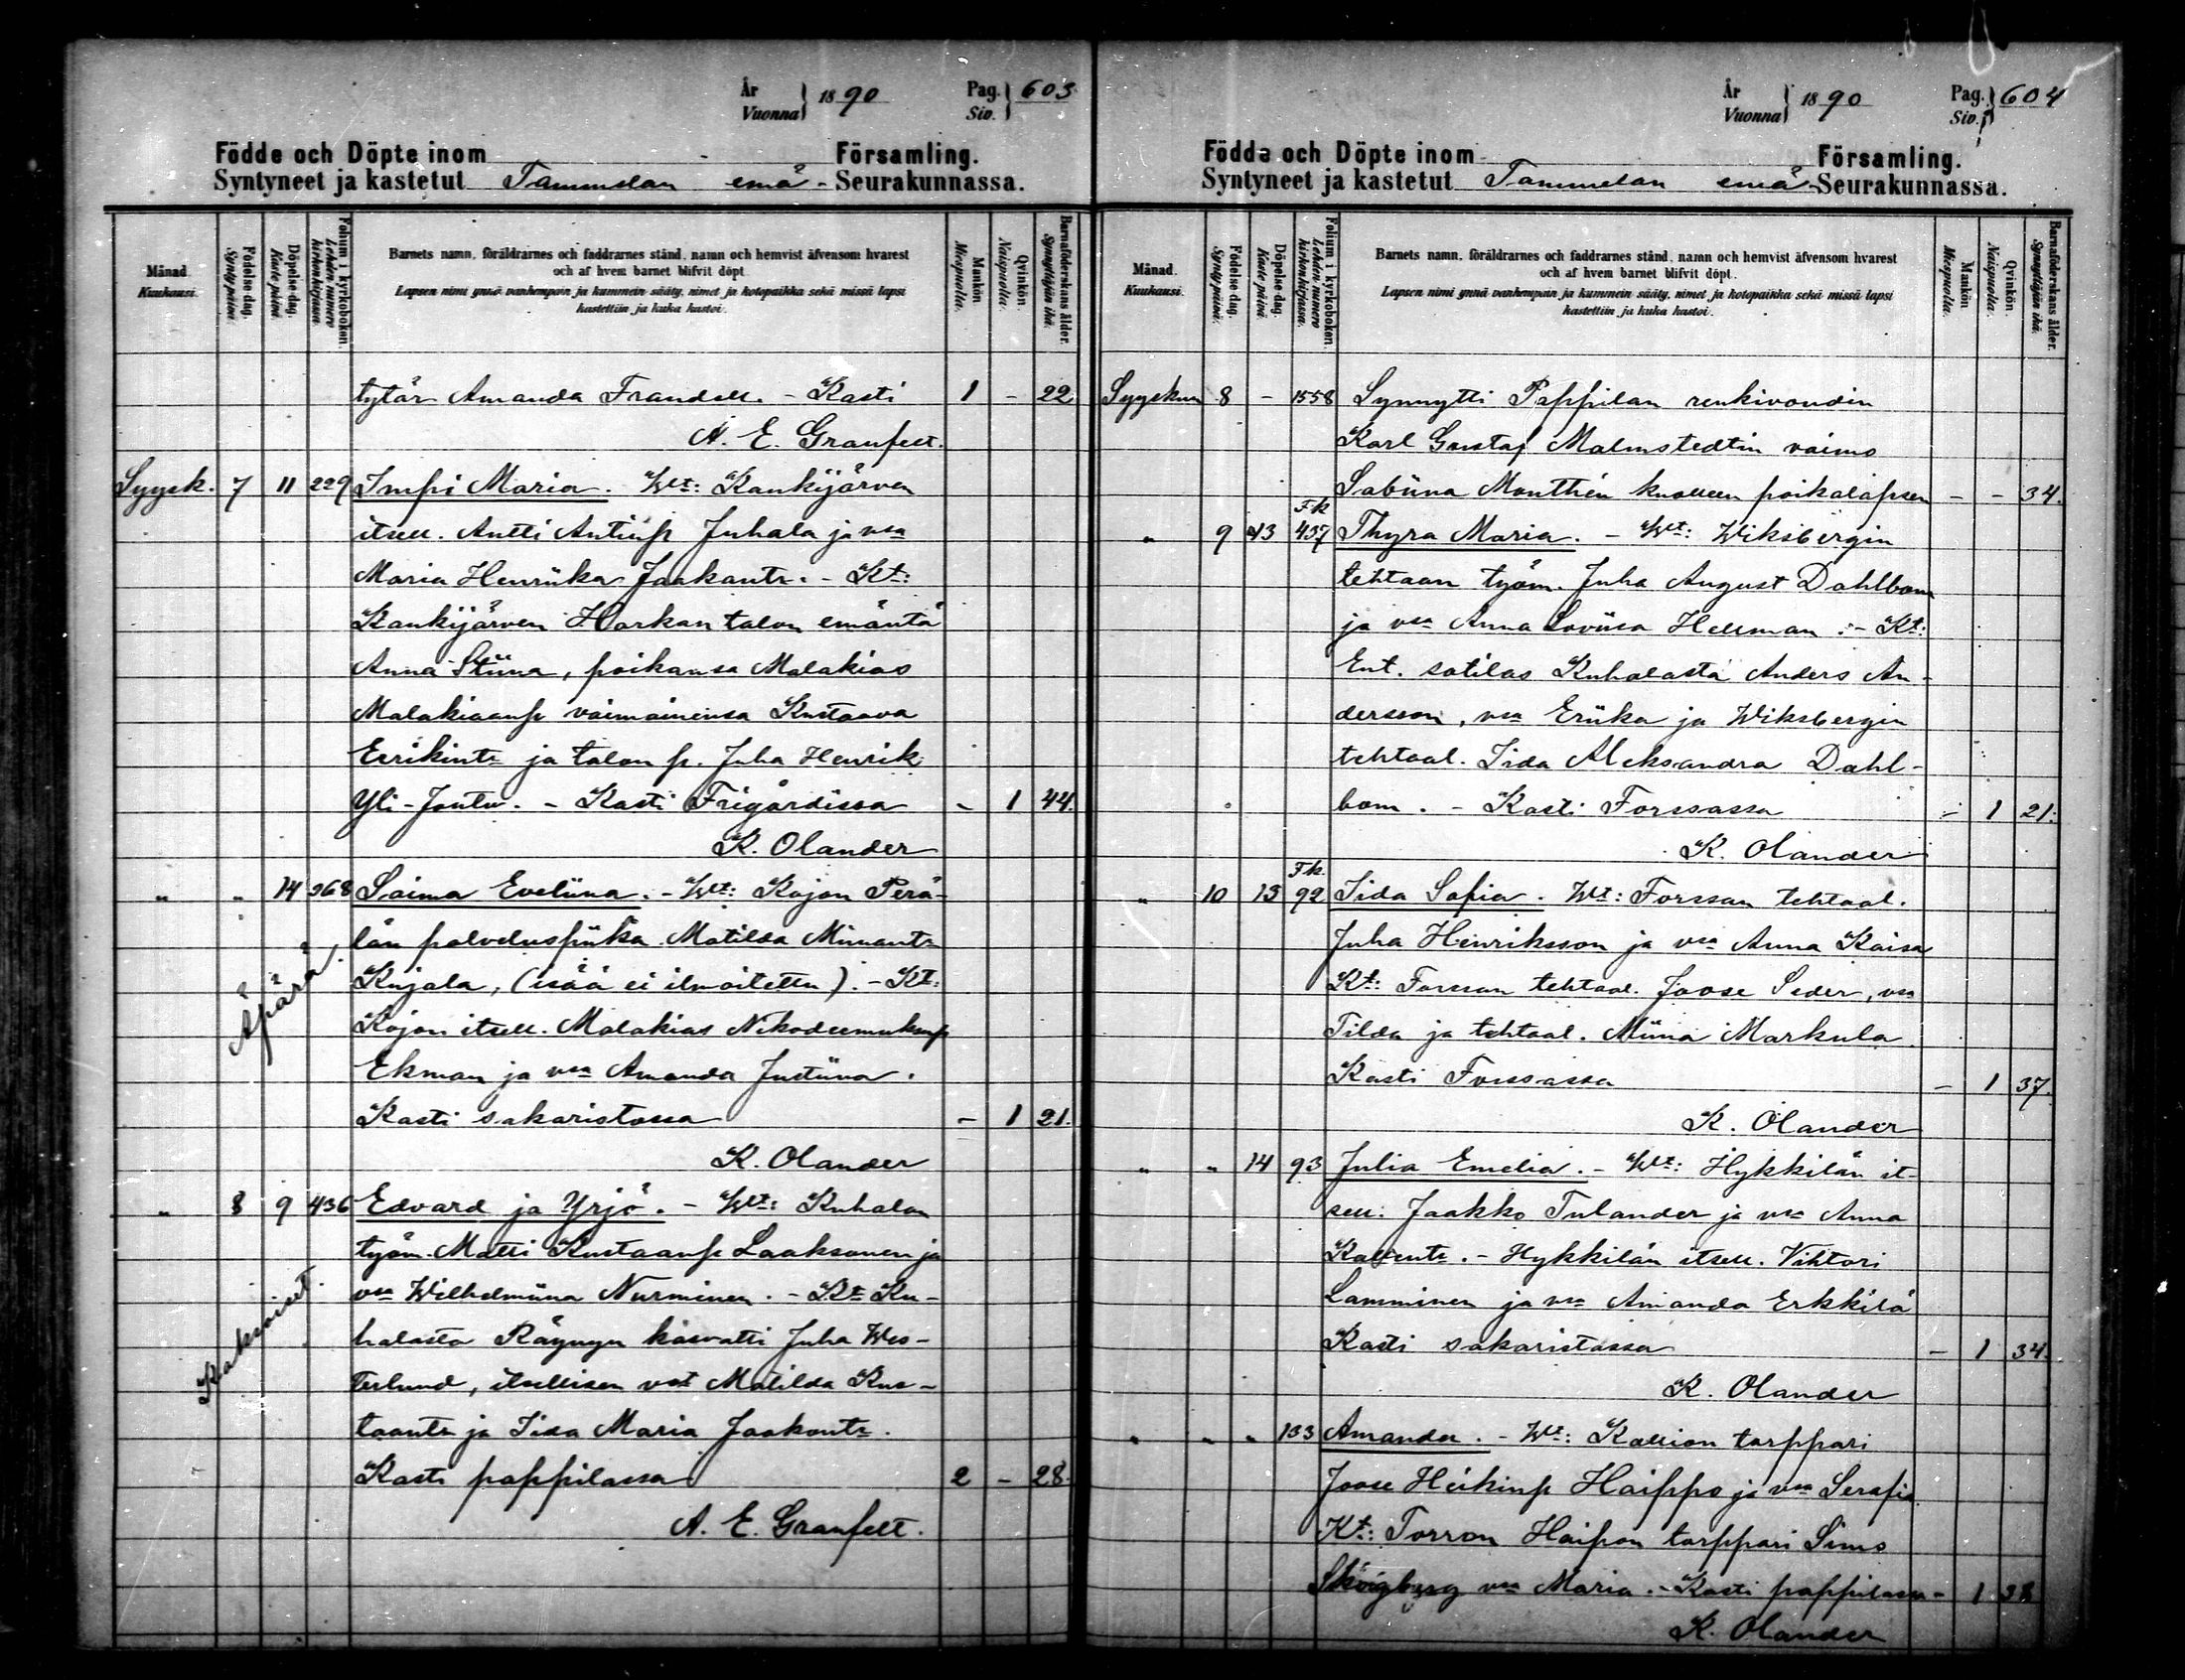 År Vuonna } 1890 Pag. Siv. } 603
Födde och Döpte inom Församling.
Syntyneet ja kastetut Tammelan emä- Seurakunnassa.
Månad. Kuukausi.
Födelse dag. Syntypäivä.
Döpelse dag. Kaste päivä.
Folium i kyrkoboken. Lehden numero kirkonkirjassa.
Barnets namn, föräldrarnes och faddrarnes stånd, namn och hemvist äfvensom hvarest
och af hvem barnet blifvit döpt.
Lapsen nimi ynnä vanhempain ja kummein sääty, nimet ja kotopaikka sekä missä lapsi
kastettiin ja kuka kastoi.
Mankön. Miespuolia.
Qvinkön. Naispuolia.
Barnaföderskans ålder. Synnyttäjän ikä.
tytär Amanda Frandsell. - Kasti 1 - 22
A. E. Granfelt.
Syysk. 7 11 229 Impi Maria. Wt: Kankijärven
itsell. Antti Antinp Juhala ja vmo
Maria Henriika Jaakontr. - Kt:
Kankijärven Harkan talon emäntä
Anna Stiina, poikansa Malakias
Malakiaanp vaimoinensa Kustaava
Eerikintr ja talon p. Juha Henrik
Yli-Jontu. - Kasti Frigårdissa - 1 44.
K. Olander
" " 14 368 Saima Eveliina. - Wt: Kojon Perä-
Äpärä.
län palveluspiika Matilda Minantr
Kujala, (isää ei ilmoitettu). - Kt:
Kojon itsell. Malakias Nikodeemuksenp
Ekman ja vmo Amanda Justiina.
Kasti sakaristossa - 1 21.
K. Olander
" 8 9 436 Edvard ja Yrjö. - Wt: Kuhalan
Kaksoiset.
työm. Matti Kustaanp Laaksonen ja
vmo Wilhelmiina Nurminen. - Kt Ku-
halasta Räynyn kasvatti Juha Wes-
terlund, itsellisen vmt Matilda Kus-
taantr ja Iida Maria Jaakontr.
Kasti pappilassa 2 - 28.
A. E. Granfelt.
År Vuonna } 1890 Pag. Siv. } 604
Födde och Döpte inom Församling.
Syntyneet ja kastetut Tammelan emä- Seurakunnassa.
Månad. Kuukausi.
Födelse dag. Syntypäivä.
Döpelse dag. Kaste päivä.
Folium i kyrkoboken. Lehden numero kirkonkirjassa.
Barnets namn, föräldrarnes och faddrarnes stånd, namn och hemvist äfvensom hvarest
och af hvem barnet blifvit döpt.
Lapsen nimi ynnä vanhempain ja kummein sääty, nimet ja kotopaikka sekä missä lapsi
kastettiin ja kuka kastoi.
Mankön. Miespuolia.
Qvinkön. Naispuolia.
Barnaföderskans ålder. Synnyttäjän ikä.
Syyskuu 8 - 1558 Synnytti Pappilan renkivoudin
Karl Gustaf Malmstedtin vaimo
Sabiina Monthén kuolleen poikalapsen - - 34.
" 9 13 Fk 437 Thyra Maria. - Wt: Wiksbergin
tehtaan työm. Juha August Dahlbom
ja vmo Anna Loviisa Hellman. - Kt:
Ent. sotilas Kuhalasta Anders An-
dersson, vmo Eriika ja Wiksbergin
tehtaal. Iida Aleksandra Dahl-
bom. - Kasti Forssassa - 1 21.
K. Olander
" 10 13 Fk. 92 Iida Sofia. Wt: Forssan tehtaal.
Juha Henriksson ja vmo Anna Kaisa
Kt: Forssan tehtaal. Joose Seder, vmo
Tilda ja tehtaal. Miina Markula
Kasti Forssassa - 1 37.
K. Olander
" " 14 93 Julia Emelia. - Wt: Hykkilän it-
sell. Jaakko Tulander ja vmo Anna
Kallentr. - Hykkilän itsell. Vihtori
Lamminen ja vmo Amanda Erkkilä
Kasti sakaristossa - 1 34.
K. Olander
" " " 133 Amanda. - Wt: Kallion torppari
Joose Heikinp Haippo ja vmo Serafia
Kt: Torron Haipon torppari Simo
Skogberg vmo Maria. - Kasti pappilassa - 1 38
K. Olander